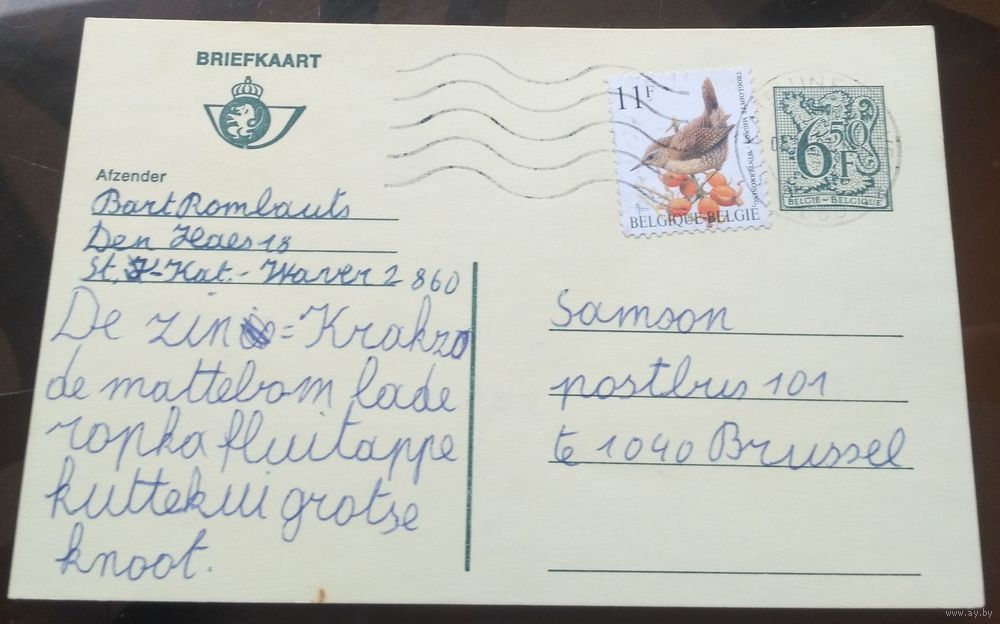 BRIEFKAART
Afzender
Bart Rombauts
Den Haes 18
St. K-Kat.- Waver 2860
De zin = Krakzo
de mattebom lade
ropka fluitappe
kuttekui grotse
knoot.
11F
WINTERKONING
BELGIQUE-BELGIË
6,50 F
BELGIË - BELGIQUE
Samson
postbus 101
te 1040 Brussel
www.ay.by